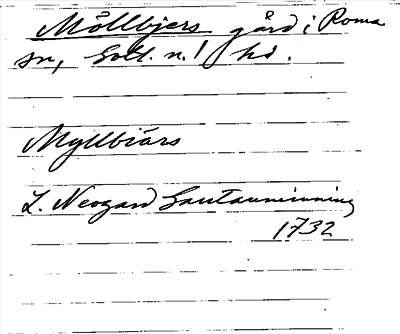 Möllbjers gård i Roma
sn, Gotl. n. hd.
Myllbiärs
L. Neogard Gautauminning
1732